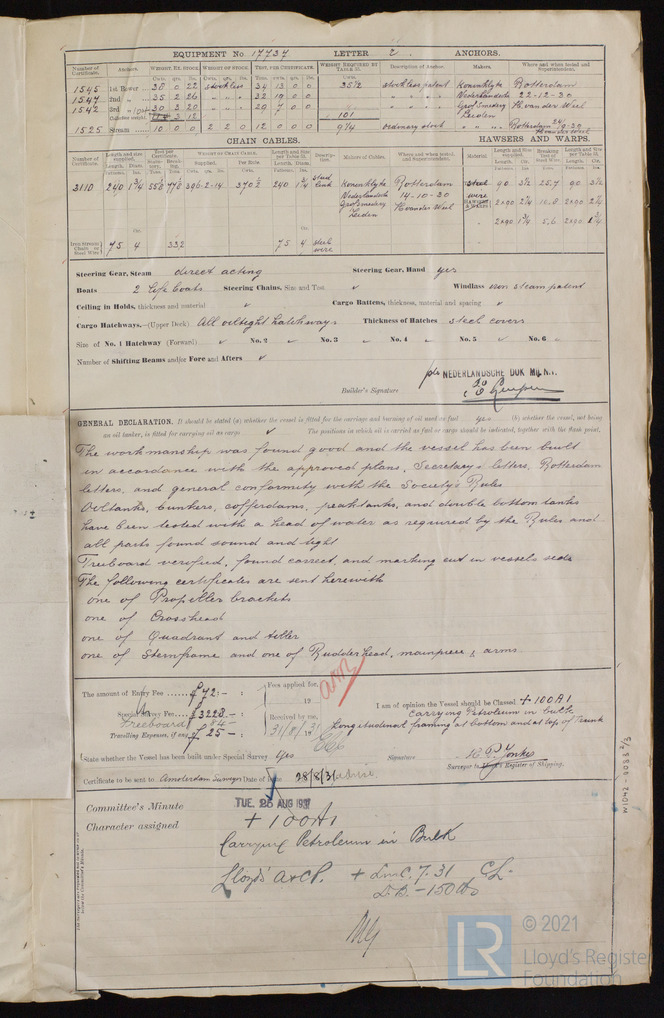 EQUIPMENT No. 17737 LETTER 2 ANCHORS.
Number of Certificate. Anchors. WEIGHT, EX. STOCK. WEIGHT OF STOCK. TEST, PER CERTIFICATE. WEIGHT REQUIRED BY TABLE 31. Description of Anchor. Makers. Where and when tested and Superintendent.
Cwts. qrs. lbs. Cwts.
1545 1st Bower 38 0 22 stockless 34 13 0 0 35½ stockless patent Koninklyke Rotterdam
1547 2nd 35 2 26 32 19 0 0 Nederlandsche 22-12-30
1542 3rd 30 3 20 29 7 0 0 Grofsmedery H vander Wiel
Collective weight 101 Leiden
1525 Stream 10 0 0 2 2 0 12 0 0 0 9¼ ordinary stock Rotterdam
CHAIN CABLES. HAWSERS AND WARPS.
3110 240 1¾ 55.0 77.0 396-2-14 370½ 240 1¾ stud link Koninklyke Rotterdam steel wire 90 3½ 25.7 90 3½
Nederlandsche 14-10-30
Grofsmedery H vander Wiel 2x90 2¼ 2x90 2¼
Leiden
2x90 1¾ 5.6 2x90 1¾
Iron Stream Chain or Steel Wire 75 4 33.2 75 4 steel wire
Steering Gear, Steam direct acting Steering Gear, Hand yes
Boats 2 Life boats Steering Chains, Size and Test ✓ Windlass iron steam patent
Ceiling in Holds, thickness and material ✓ Cargo Battens, thickness, material and spacing ✓
Cargo Hatchways.—(Upper Deck) All oiltight hatchways Thickness of Hatches steel covers
Size of No. 1 Hatchway (Forward) ✓ No. 2 No. 3 No. 4 No. 5 ✓ No. 6
Number of Shifting Beams and/or Fore and Afters ✓
p/o NEDERLANDSCHE DOK MIJ N.V.
Builder's Signature
GENERAL DECLARATION. It should be stated (a) whether the vessel is fitted for the carriage and burning of oil used as fuel yes (b) whether the vessel, not being
an oil tanker, is fitted for carrying oil as cargo ✓ The positions in which oil is carried as fuel or cargo should be indicated, together with the flash point.
The workmanship was found good and the vessel has been built
in accordance with the approved plans, Secretary's letters, Rotterdam
letters, and general conformity with the Society's Rules
Oiltanks, bunkers, cofferdams, peaktanks, and double bottom tanks
have been tested with a head of water as required by the Rules and
all parts found sound and tight
Freeboard verified, found correct, and marking cut in vessels side
The following certificates are sent herewith
one of Propeller brackets
one of Crosshead
one of Quadrant and tiller
one of Sternframe and one of Rudderhead, mainpiece & arms
The amount of Entry Fee ƒ 72:- : Fees applied for,
19
Special Survey Fee ƒ 3228 - : Received by me,
Freeboard 84 -
Travelling Expenses, if any ƒ 25 - : 31/8/31
I am of opinion the Vessel should be Classed + 100A1
Carrying Petroleum in bulk
Longitudinal framing at bottom and at top of Trunk
State whether the Vessel has been built under Special Survey Yes
Signature H. P. Jonkes
Surveyor to Lloyd's Register of Shipping.
Certificate to be sent to Amsterdam Surveyors Date of issue 28/8/31
Committee's Minute TUE. 25 AUG 1931
Character assigned + 100A1
Carrying Petroleum in Bulk
Lloyd's A&CP. + LMC. 7.31 CL.
D.B. - 150 lb
W1042-0083 2/3
© 2021
LR
Lloyd's Register
Foundation